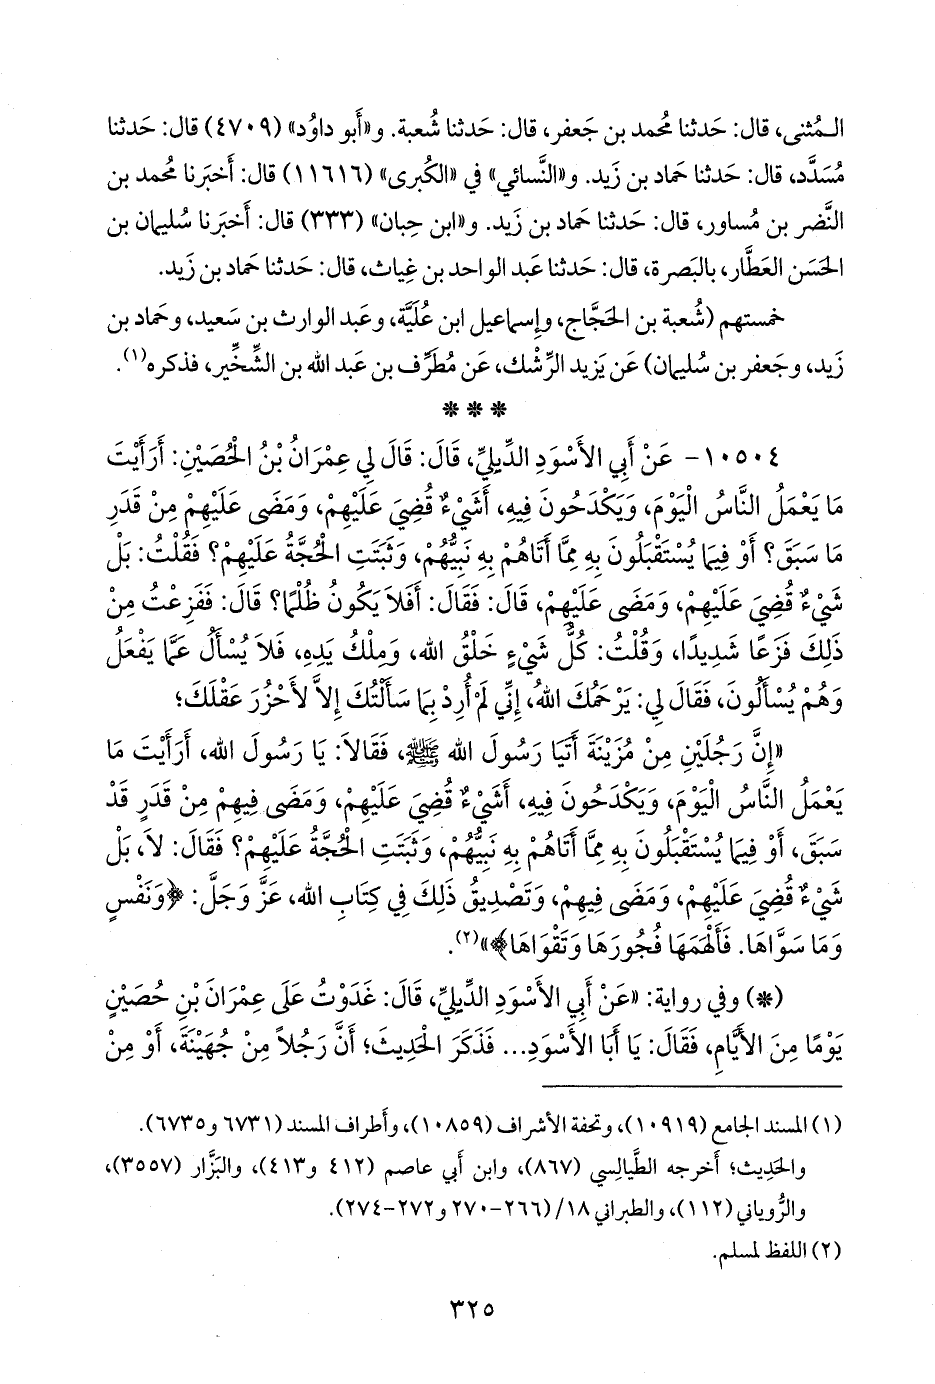 الـمُثنى، قال: حَدثنا مُحمد بن جَعفر، قال: حَدثنا شُعبة. و«أَبو داوُد» (٤٧٠٩) قال: حَدثنا
مُسَدَّد، قال: حَدثنا حَماد بن زَيد. و«النَّسائي» في «الكُبرى» (١١٦١٦) قال: أَخبَرنا مُحمد بن
النَّضر بن مُساور، قال: حَدثنا حَماد بن زَيد. و«ابن حِبان» (٣٣٣) قال: أَخبَرنا سُليمان بن
الحَسَن العَطَّار، بالبَصرة، قال: حَدثنا عَبد الواحد بن غِياث، قال: حَدثنا حَماد بن زَيد.
خمستهم (شُعبة بن الحَجَّاج، وإِسماعيل ابن عُلَيَّة، وعَبد الوارث بن سَعيد، وحَماد بن
زَيد، وجَعفر بن سُليمان) عَن يَزيد الرِّشْك، عَن مُطَرِّف بن عَبد الله بن الشِّخِّير، فذكره(١).
* * *
١٠٥٠٤- عَنْ أَبِي الأَسْوَدِ الدِّيلِيِّ، قَالَ: قَالَ لِي عِمْرَانُ بْنُ الْحُصَيْنِ: أَرَأَيْتَ
مَا يَعْمَلُ النَّاسُ الْيَوْمَ، وَيَكْدَحُونَ فِيهِ، أَشَيْءٌ قُضِيَ عَلَيْهِمْ، وَمَضَى عَلَيْهِمْ مِنْ قَدَرِ
مَا سَبَقَ؟ أَوْ فِيمَا يُسْتَقْبَلُونَ بِهِ مِمَّا أَتَاهُمْ بِهِ نَبِيُّهُمْ، وَثَبَتَتِ الْحُجَّةُ عَلَيْهِمْ؟ فَقُلْتُ: بَلْ
شَيْءٌ قُضِيَ عَلَيْهِمْ، وَمَضَى عَلَيْهِمْ، قَالَ: فَقَالَ: أَفَلاَ يَكُونُ ظُلْمًا؟ قَالَ: فَفَزِعْتُ مِنْ
ذَلِكَ فَزَعًا شَدِيدًا، وَقُلْتُ: كُلُّ شَيْءٍ خَلْقُ الله، وَمِلْكُ يَدِهِ، فَلاَ يُسْأَلُ عَمَّا يَفْعَلُ
وَهُمْ يُسْأَلُونَ، فَقَالَ لِي: يَرْحَمُكَ اللهُ، إِنِّي لَمْ أُرِدْ بِمَا سَأَلْتُكَ إِلاَّ لأَحْزُرَ عَقْلَكَ؛
«إِنَّ رَجُلَيْنِ مِنْ مُزَيْنَةَ أَتَيَا رَسُولَ الله ﷺ، فَقَالاَ: يَا رَسُولَ الله، أَرَأَيْتَ مَا
يَعْمَلُ النَّاسُ الْيَوْمَ، وَيَكْدَحُونَ فِيهِ، أَشَيْءٌ قُضِيَ عَلَيْهِمْ، وَمَضَى فِيهِمْ مِنْ قَدَرٍ قَدْ
سَبَقَ، أَوْ فِيمَا يُسْتَقْبَلُونَ بِهِ مِمَّا أَتَاهُمْ بِهِ نَبِيُّهُمْ، وَثَبَتَتِ الْحُجَّةُ عَلَيْهِمْ؟ فَقَالَ: لاَ، بَلْ
شَيْءٌ قُضِيَ عَلَيْهِمْ، وَمَضَى فِيهِمْ، وَتَصْدِيقُ ذَلِكَ فِي كِتَابِ الله، عَزَّ وَجَلَّ: ﴿وَنَفْسٍ
وَمَا سَوَّاهَا. فَأَلْهَمَهَا فُجُورَهَا وَتَقْوَاهَا﴾»(٢).
(*) وفي رواية: «عَنْ أَبِي الأَسْوَدِ الدِّيلِيِّ، قَالَ: غَدَوْتُ عَلَى عِمْرَانَ بْنِ حُصَيْنٍ
يَوْمًا مِنَ الأَيَّامِ، فَقَالَ: يَا أَبَا الأَسْوَدِ... فَذَكَرَ الْحَدِيثَ؛ أَنَّ رَجُلاً مِنْ جُهَيْنَةَ، أَوْ مِنْ
(١) المسند الجامع (١٠٩١٩)، وتحفة الأشراف (١٠٨٥٩)، وأطراف المسند (٦٧٣١ و٦٧٣٥).
والحَدِيث؛ أخرجه الطَّيالِسي (٨٦٧)، وابن أبي عاصم (٤١٢ و٤١٣)، والبَزَّار (٣٥٥٧)،
والرُّوياني (١١٢)، والطبراني ١٨/(٢٦٦-٢٧٠ و٢٧٢-٢٧٤).
(٢) اللفظ لمسلم.
٣٢٥